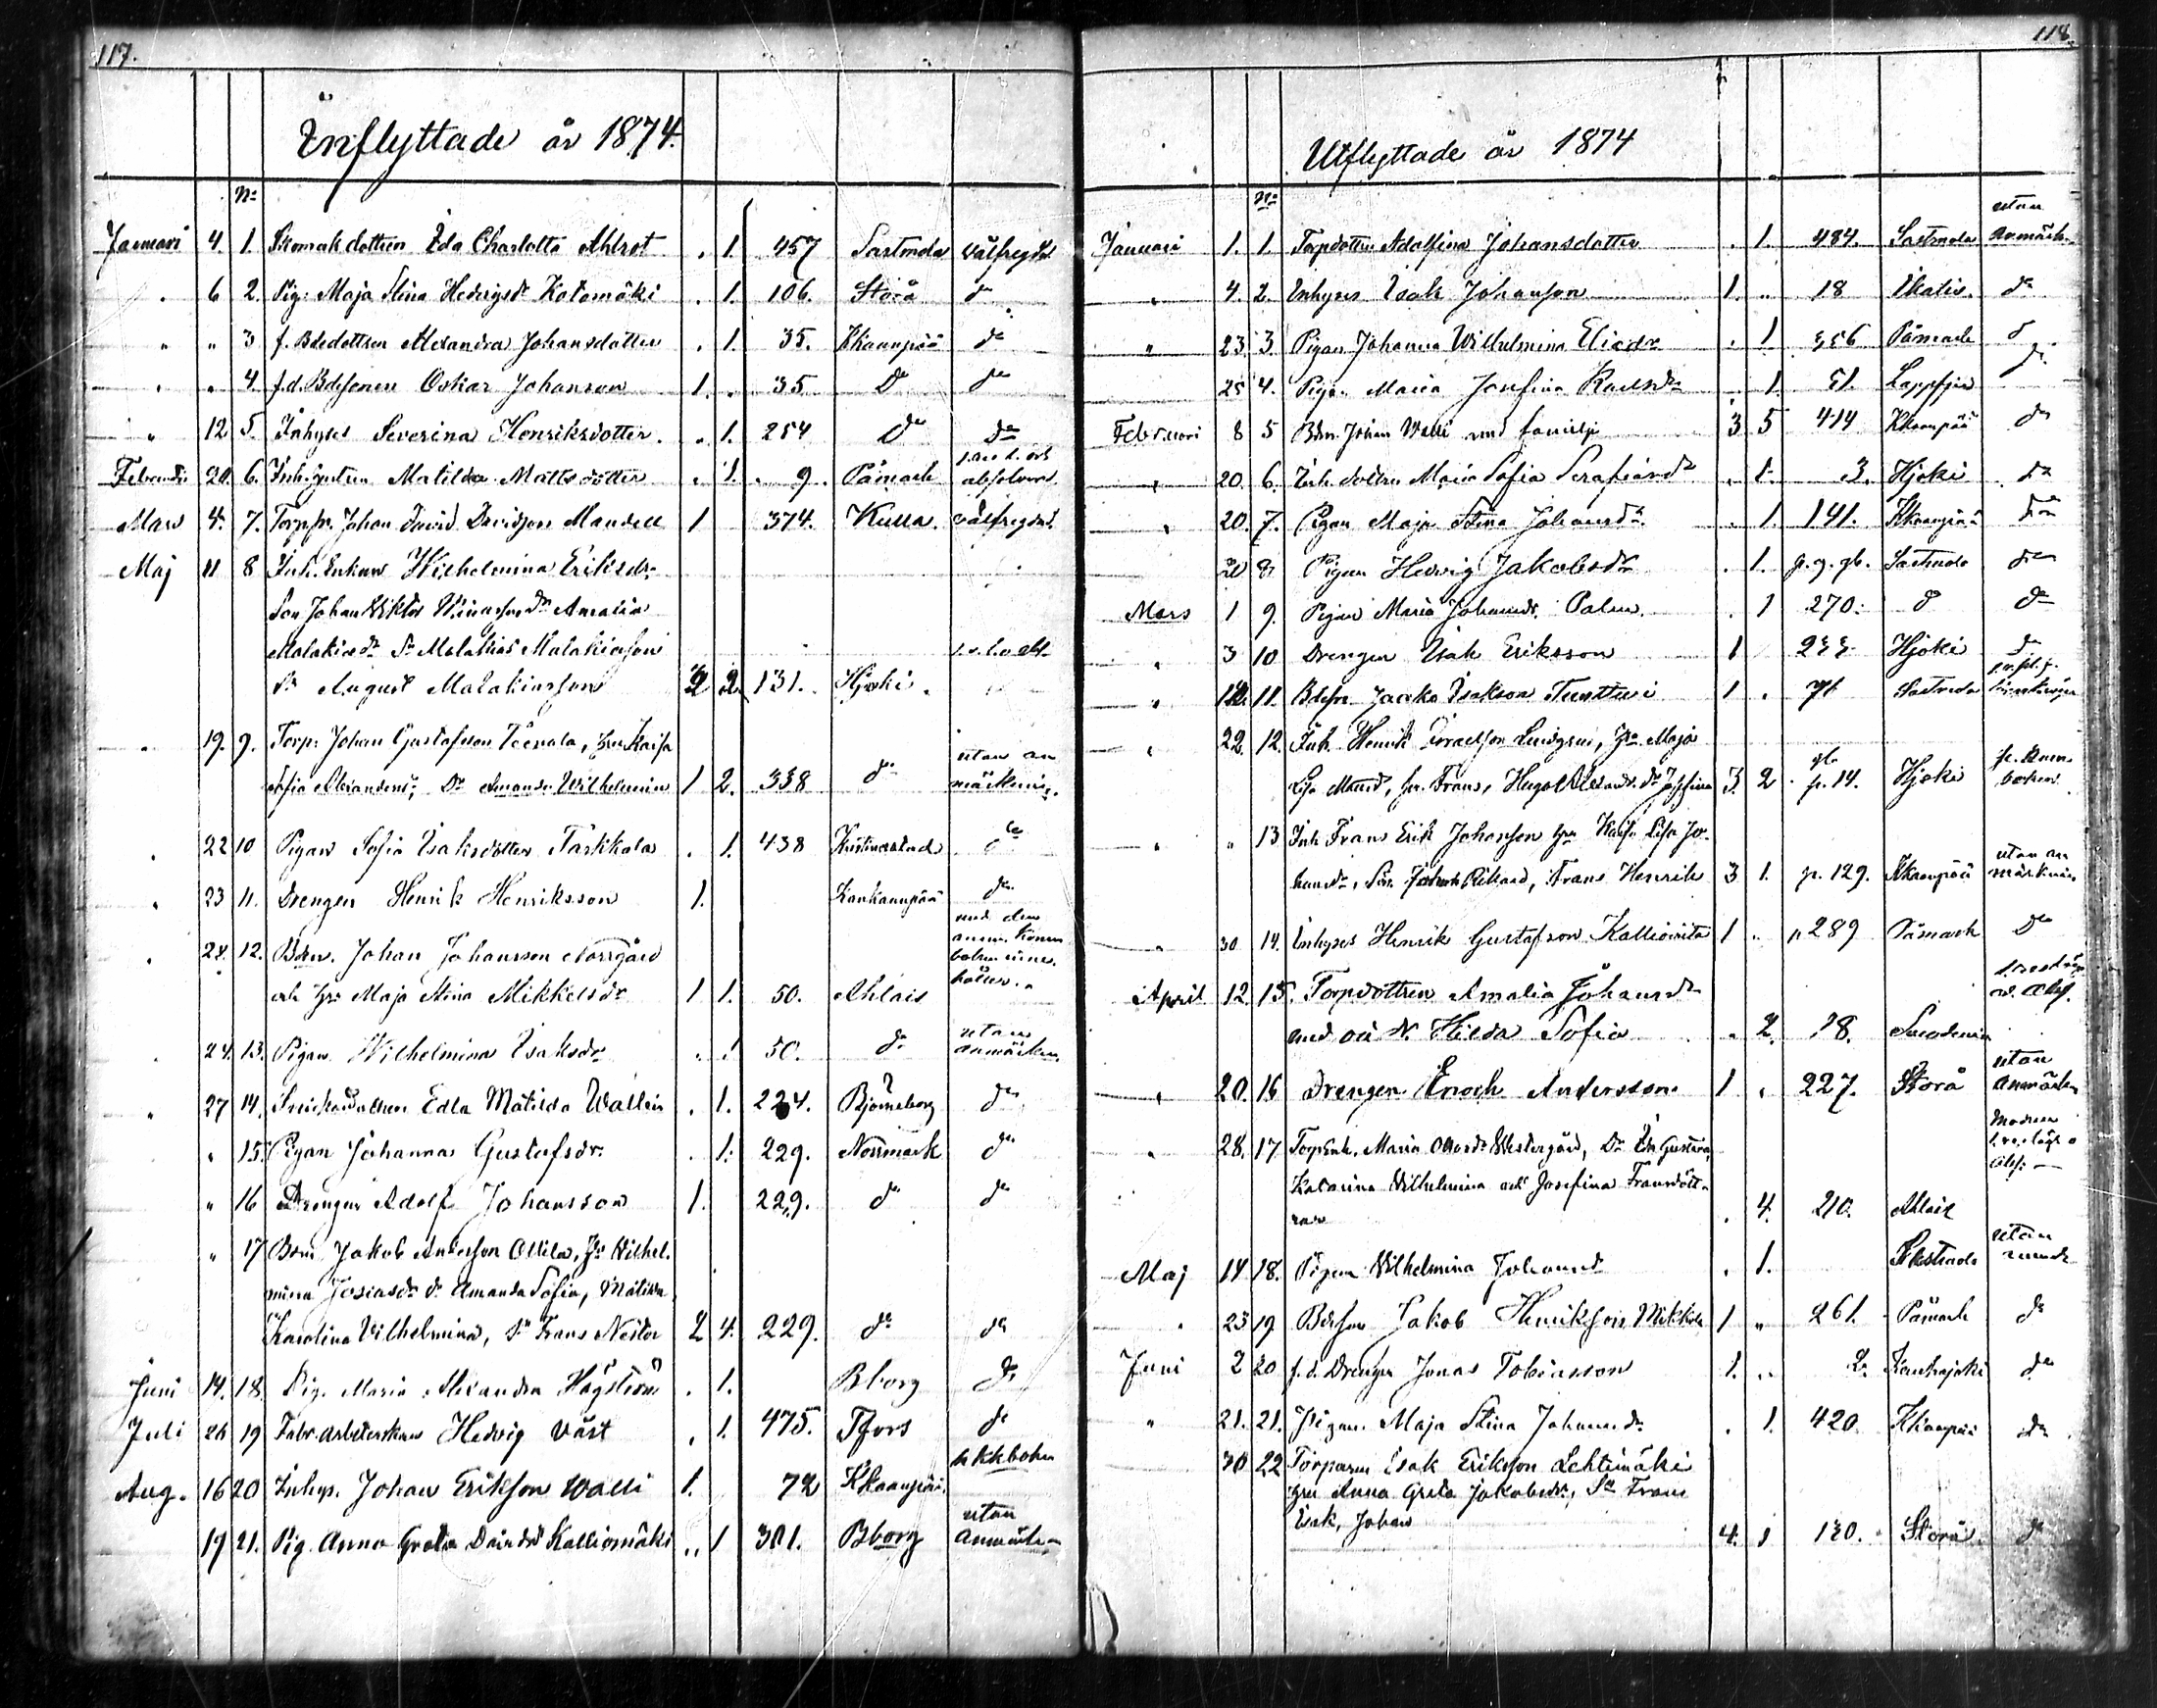 117.
Inflyttade år 1874.
No
Januari 4. 1. Skomak dottren Ida Charlotta Ahlrot . 1. 457 Sastmola välfregdad
6 2. Pig. Maja Stina Hedvigsdr Katamäki . 1. 106. Storå do
" " 3 f. Bdedottren Alexandra Johansdotter . 1. 35. Kkaanpää do
" 4. f.d. Bdesonen Oskar Johanson 1. . 35 Do do
" 12 5. Inhyses Severina Henriksdotter. . 1. 254 Do do
Februari 20. 6. Inh. Matilda Mattsdotter . 1. 9. Påmark absolverad
Mars 4. 7. Torpsn. Johan David Davidsson Mandell 1 374. Kulla. välfregdad.
Maj 11 8 Inh. Enkan Wilhelmina Eriksdr
Son Johan Viktor dr Amalia
Malakiasdr Sn Malakias Malakiasson
Sn August Malakiasson 2 2. 131. Hjoki.
19. 9. Torp. Johan Gustafsson, hu Kaisa
Sofia Alexandersdr, Dr Amanda Wilhelmina 1 2. 338 do utan anmärkning.
22 10 Pigan Sofia Isaksdotter Tarkkala . 1. 438 Kristinestad do
23 11. Drengen Henrik Henriksson 1. Kankaanpää do
24. 12. Bdn. Johan Johansson Norrgård
och hu Maja Stina Mikkelsdr 1 1. 50. Ahlais
24. 13. Pigan Wilhelmina Isaksdr . 1 50. do utan anmärkn.
27 14. Edla Matilda Wallin . 1. 224. Björneborg do
" 15. Pigan Johanna Gustafsdr . 1. 229. Norrmark do
" 16 Drengen Adolf Johansson 1. 229. do do
" 17 Bdn. Jakob Andersson Ollila, hu Wilhelmina
Josiasdr dr Amanda Sofia, Matilda
Karolina Vilhelmina, Sn Frans Nestor 2 4. 229. do do
Juni 14. 18. Pig. Maria Alexandra Högström . 1. Bborg do
Juli 26 19 Fabr. arbeterskan Hedvig Väst . 1. 475. Tfors do
Aug. 16 20 Inhys. Johan Erikson Walli 1. 72 Kkaanpää.
19 21. Pig. Anna Greta Davidsdr Kalliomäki .. 1 301. Bborg utan anmärkn.
118.
Utflyttade år 1874
No
Januari 1. 1. Torpdottren Adolfina Johansdotter . 1. 484. Sastmola utan anmärkn.
" 4. 2. Inhyses Isak Johanson 1. " 18 Ikalis. do
" 23 3. Pigan Johanna Wilhelmina Eliedr . 1 Påmark do
25 4. Pigan Maria Josefina Karlsdr . 1. 51. Lappfjärd do
Februari 8 5 Bdn. Johan Walli med familj 3 5 414 Kkaanpää do
" 20. 6. Inh. dottren Maria Sofia Serafiasdr . 1. 3. Hjoki do
" 20. 7. Pigan Maja Stina Johansdr . 1. 141. Kkaanpää do
20 8. Pigan Hedvig Jakobsdr . 1. Sastmola do
Mars 1 9. Pigan Maria Johansdr. Palm. . 1 270. do do
" 3 10 Drengen Isak Eriksson 1 Hjoki do
" 12. 11. Bdesn Jaako Isakson Tuntturi 1 . 71 Sastmola
" 22. 12. Inh. Henrik Israelson Lindgren, hu Maja
Lisa, sn. Frans, Hugo Alexander. dr Josefina 3 2 p. 14. Hjoki
" " 13 Inh Frans Erik Johansson hu Kaisa Lisa Johansdr,
Sn. Johan Rikard, Frans Henrik 3 1. p. 129. Kkaanpää utan anmärkning
" 30 14. Inhyses Henrik Gustafsson 1 .. p 289 Påmark Do
April 12. 15. Torpdottren Amalia Johansdr
med oä dr. Hilda Sofia . 2. 18.
" 20. 16 Drengen Enoch Andersson 1 . 227. Storå utan anmärkn
" 28. 17 Maria Westergård, Dr Ida Gustava,
Katarina Wilhelmina och Josefina Fransdöttrar
. 4. 210. Ahlais
Maj 14 18. Pigan Wilhelmina Johansdr . 1. utan
" 23 19. Bdesn Jakob Henriksson Mikkola 1 " 261. Påmark do
Juni 2 20 f.d. Drengen Jonas Tobiasson 1. .. 2. Kauhajoki do
" 21. 21. Pigan Maja Stina Johansdr . 1. 420. Kkaanpää do
30 22 Torparen Isak Erikson Lehtimäki
hu Anna Greta Jakobsdr, Sn Frans
Isak, Johan 4. 1 130. Storå. do